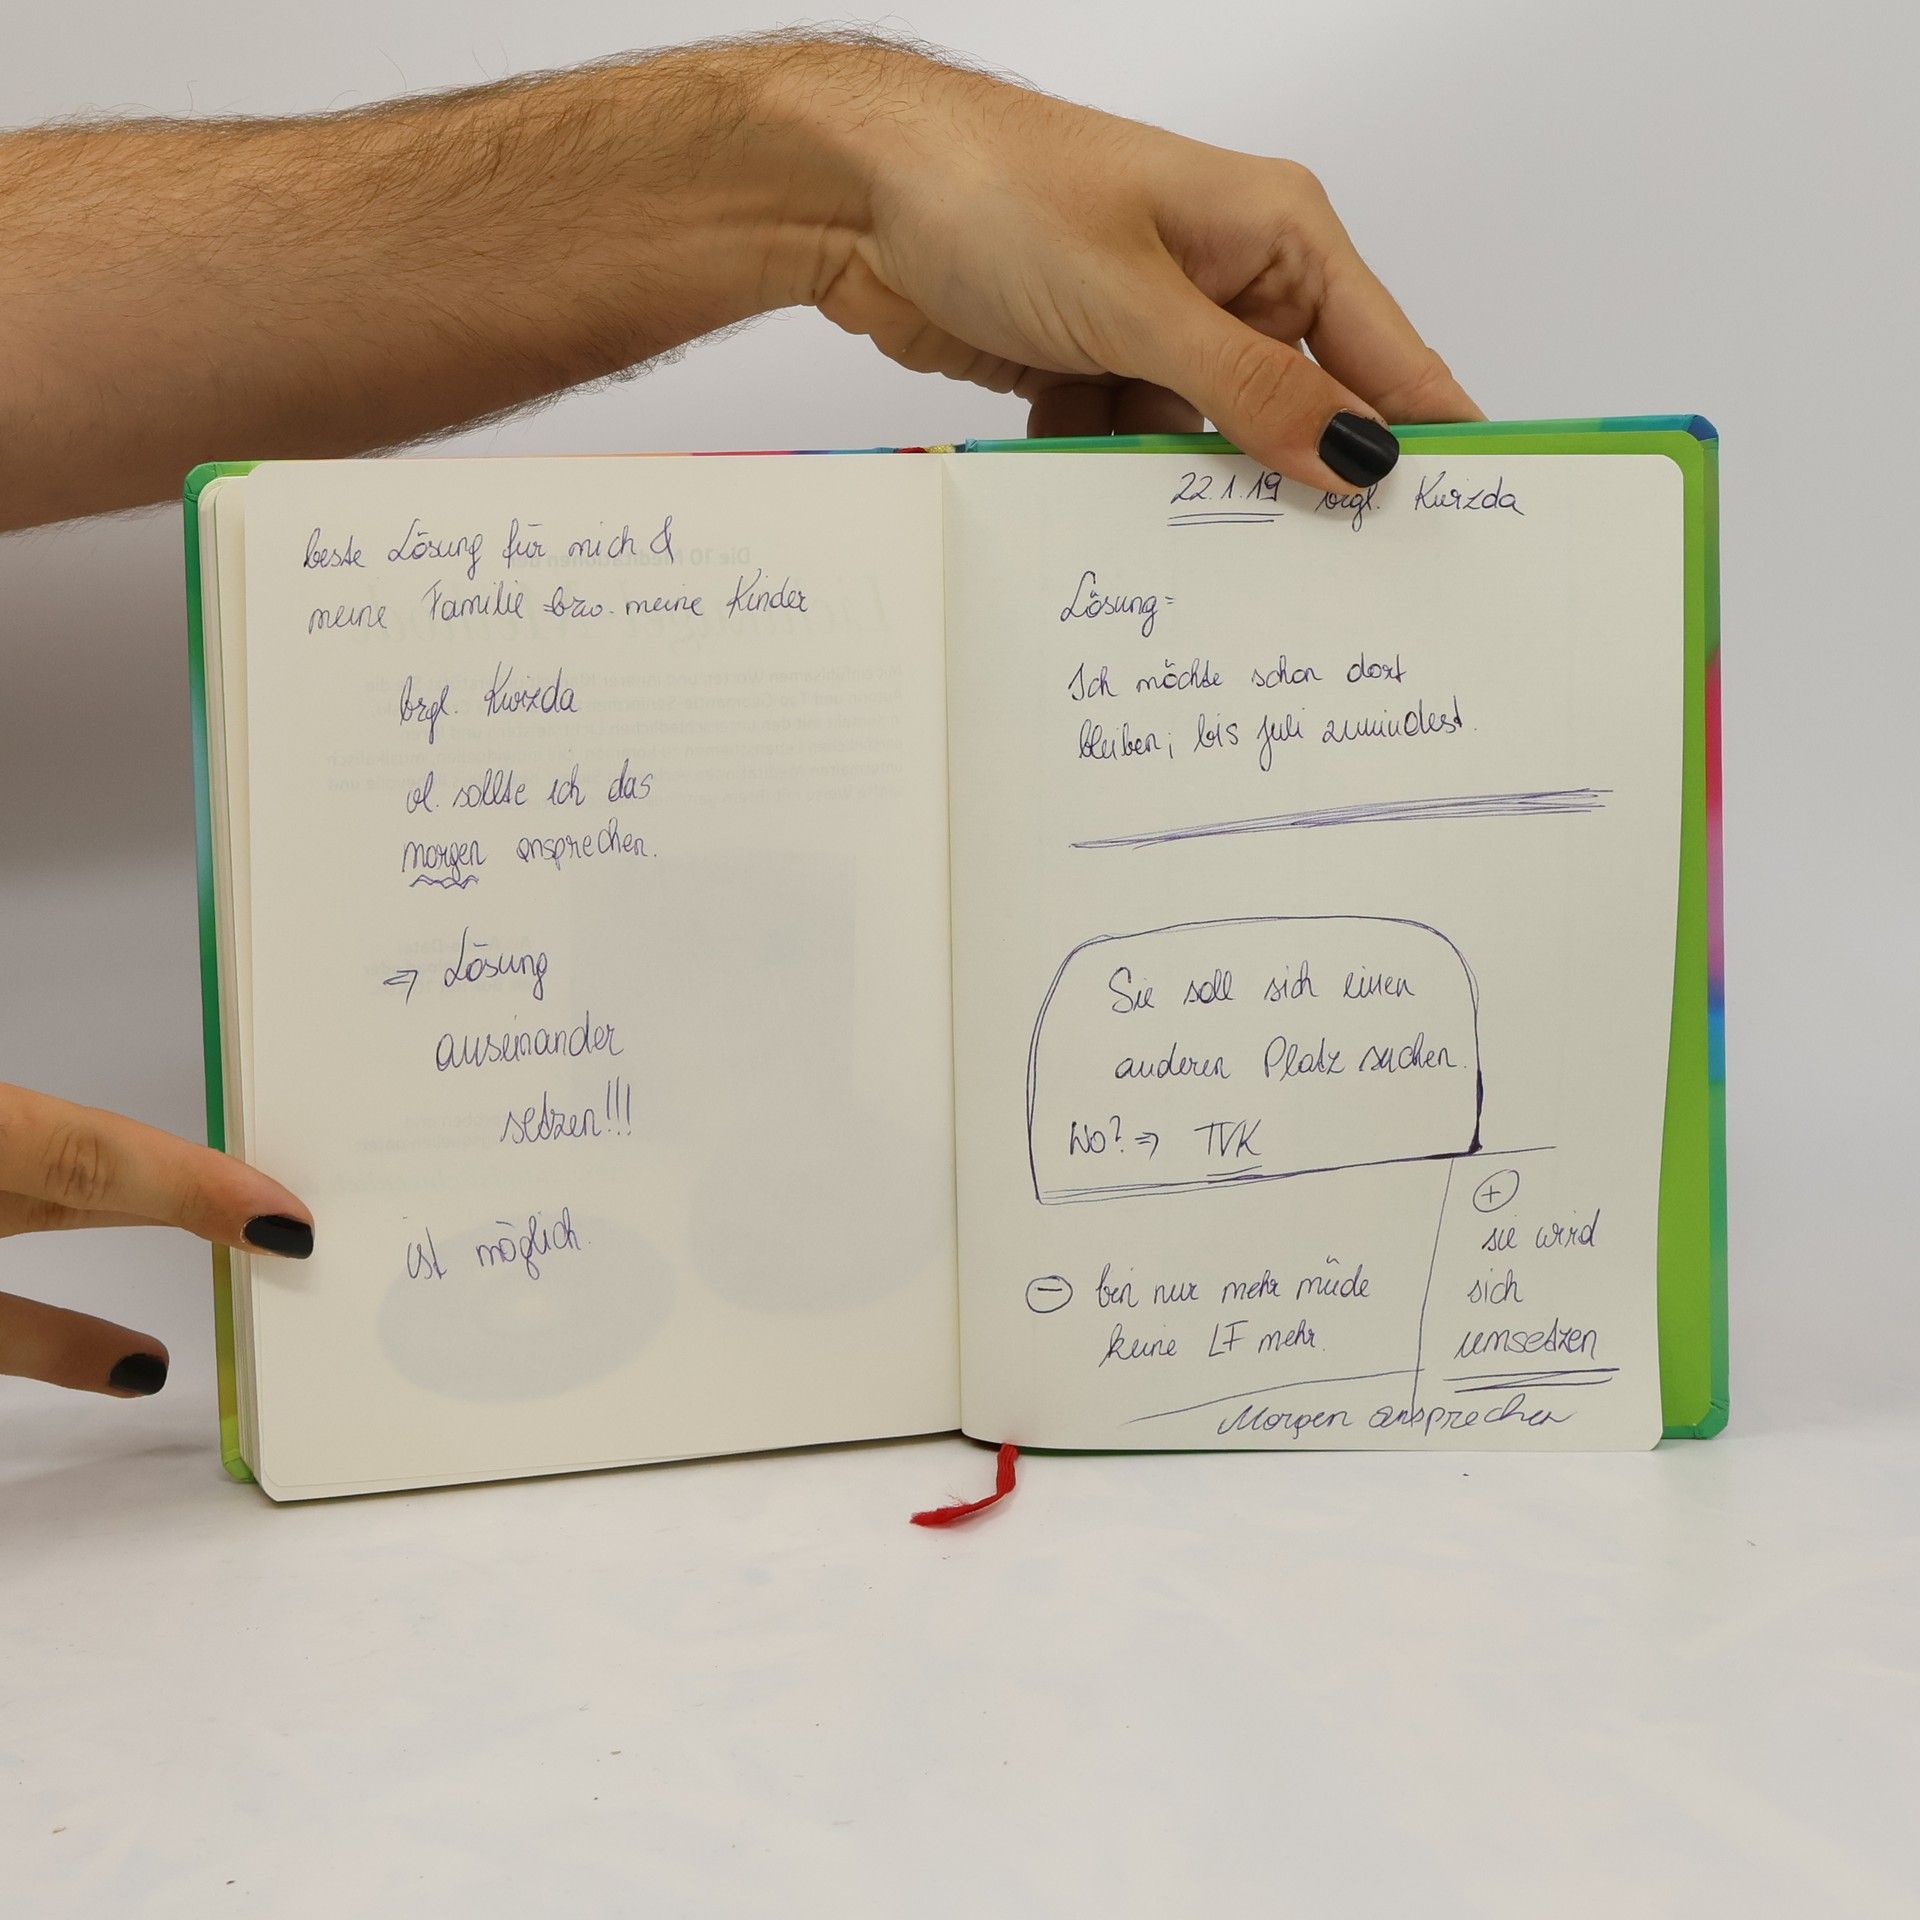 beste Lösung für mich &
meine Familie bzw. meine Kinder
bzgl. Kwizda
vl. sollte ich das
morgen ansprechen.
⇒ Lösung
auseinander
setzen!!!
ist möglich.
22.1.19 bzgl. Kwizda
Lösung=
Ich möchte schon dort
bleiben; bis Juli zumindest.
Sie soll sich einen
anderen Platz suchen.
Wo? ⇒ TVK
⊖ bin nur mehr müde
keine LF mehr.
⊕
sie wird
sich
umsetzen
Morgen ansprechen